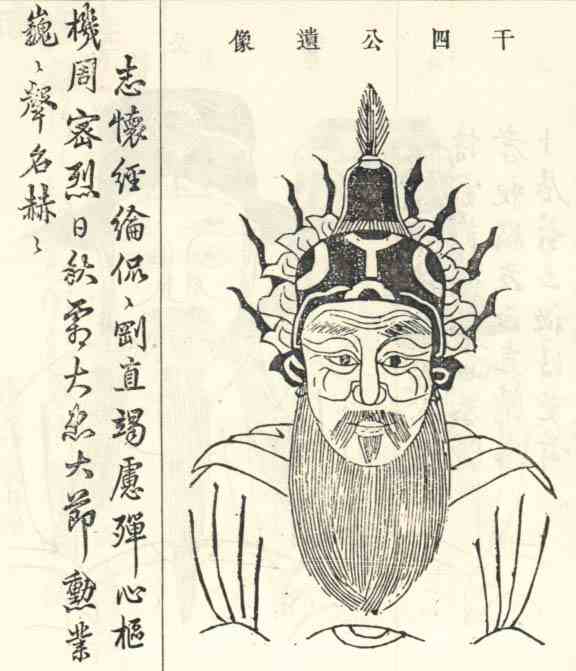 干四公遺像
志懷經綸侃〻剛直竭慮殫心樞
機周密烈日秋霜大忠大節勳業
巍〻聲名赫〻